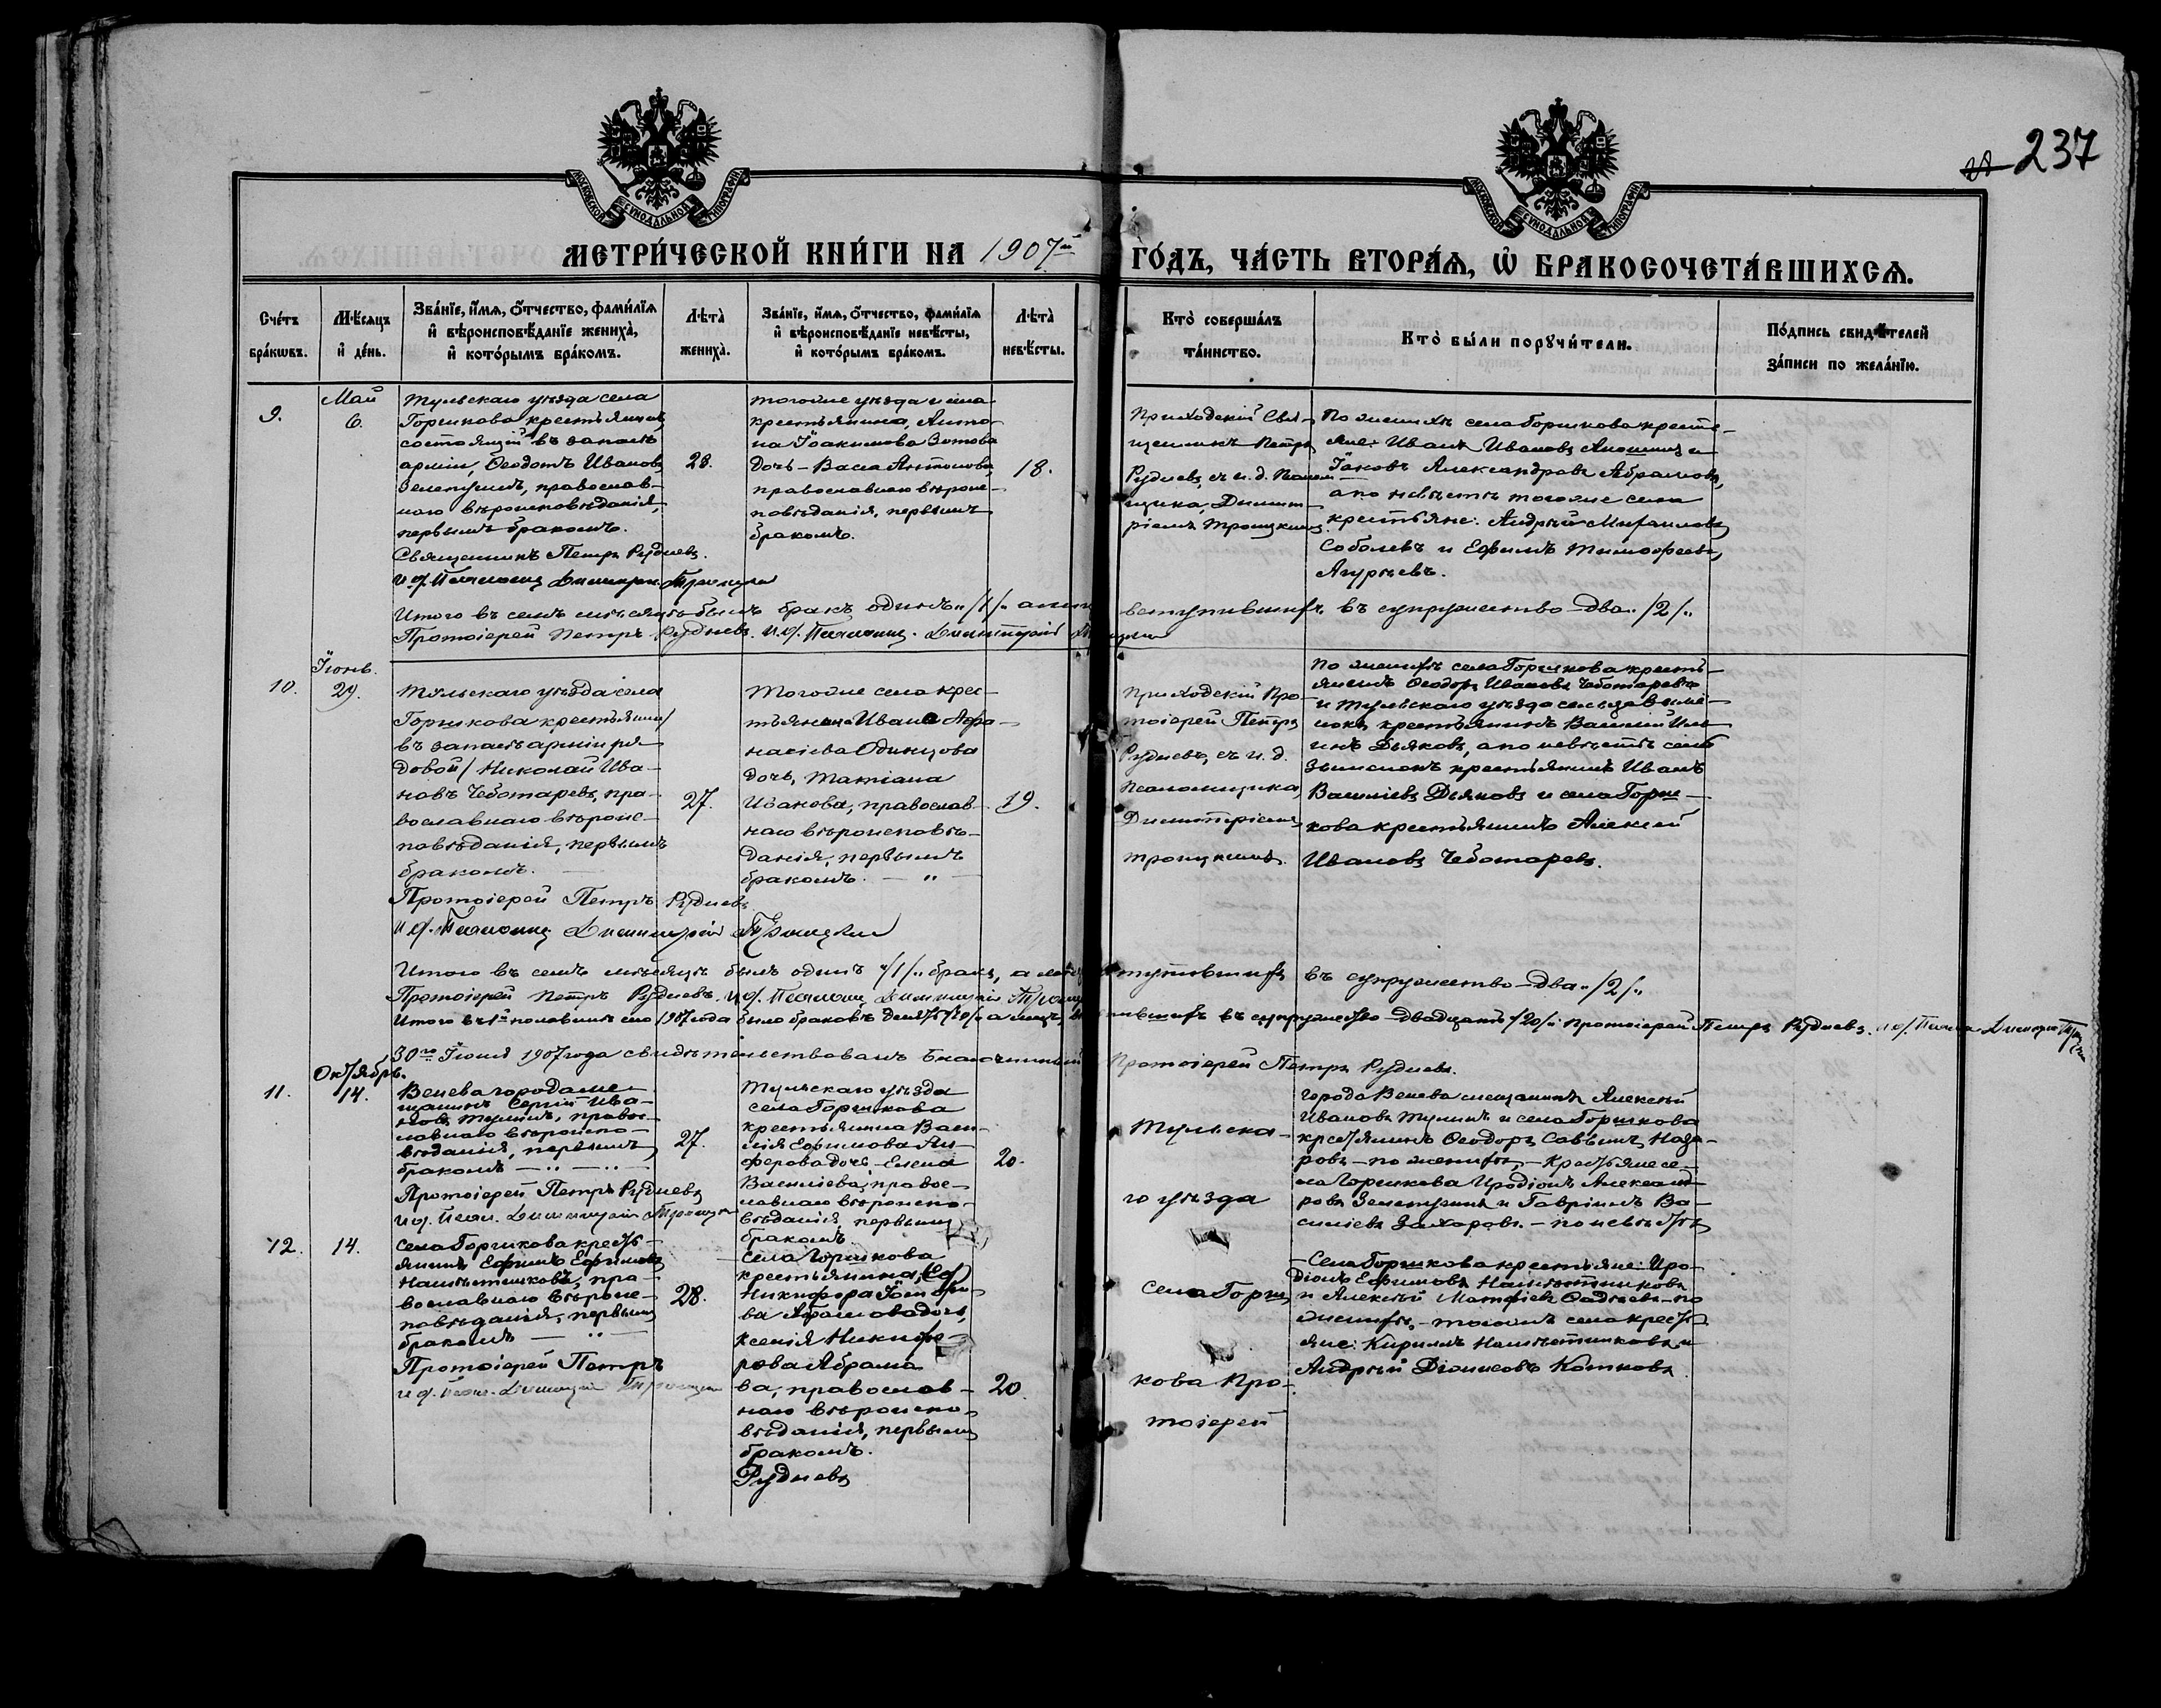 237
МОСКОВСКОЙ СѴНОДАЛЬНОЙ ТИПОГРАФІИ
МОСКОВСКОЙ СѴНОДАЛЬНОЙ ТИПОГРАФІИ
МЕТРИ́ЧЕСКОЙ КНИ́ГИ НА 1907й ГО́ДЪ, ЧА́СТЬ ВТОРА́Я, Ѡ БРАКОСОЧЕТА́ВШИХСѦ.
Сче́тъ
бра́кѡвъ.
Мѣ́сяцъ
и҆ де́нь.
Зва́нїе, и҆́мѧ, ѻ҆́тчество, фами́лїѧ
и҆ вѣроисповѣ́данїе жениха̀,
и҆ кото́рымъ бра́комъ.
Лѣта̀
жениха̀.
Зва́нїе, и҆́мѧ, ѻ҆́тчество, фами́лїѧ
и҆ вѣроисповѣ́данїе невѣ́сты,
и҆ кото́рымъ бра́комъ.
Лѣта̀
невѣ́сты.
Кто̀ соверша́лъ
та́инство.
Кто̀ бы́ли порꙋчи́тели.
По́дпись свидѣ́телей
за́писи по жела́нїю.
9.
Май
6.
Тульскаго уѣзда села
Горшкова крестьянинъ,
состоящій въ запасѣ
арміи, Ѳеодотъ Ивановъ
Зелепугинъ, православ-
наго вѣроисповѣданія,
первымъ бракомъ.
Священникъ Петръ Рудневъ.
И.д. Псаломщ. Димитрій Троицкій
28.
тогоже уѣзда и села
крестьянина, Анто-
на Іоакимова Зотова
дочь - Васса Антонова
православнаго вѣроис-
повѣданія, первымъ
бракомъ.
18.
Приходскій Свя-
щенникъ Петръ
Рудневъ, съ и. д. Псалом-
щика, Димит-
ріемъ Троицкимъ.
По женихѣ села Горшкова кресть-
яне: Иванъ Ивановъ Аношинъ и
Іаковъ Александровъ Абрамовъ,
а по невѣстѣ тогоже села
крестьяне: Андрей Михаиловъ
Соболевъ и Ефимъ Тимоѳеевъ
Агурѣевъ.
Итого въ семъ мѣсяцѣ былъ бракъ одинъ „/1/„ а лицъ вступившихъ въ супружество - два „/2/„
Протоіерей Петръ Рудневъ. И.д. Псаломщ. Димитрій Троицкій
10.
Іюнь.
29.
Тульскаго уѣзда села
Горшкова крестьянинъ/
въ запасѣ арміи ря-
довой/ Николай Ива-
новъ Чеботаревъ, пра-
вославнаго вѣроис-
повѣданія, первымъ
бракомъ.
Протоіерей Петръ Рудневъ
И.д. Псаломщ Димитрій Троицкій
27.
Тогоже села крес-
тьянина Ивана Аѳа-
насіева Одинцова
дочь, Татіана
Иванова, православ-
наго вѣроисповѣ-
данія, первымъ
бракомъ. — „ —
19.
Приходскій Про-
тоіерей Петръ
Рудневъ, съ и. д.
Псаломщика,
Димитріемъ
Троицкимъ.
По женихѣ села Горшкова кресть-
янинъ Ѳеодоръ Ивановъ Чеботаревъ
и Тульскаго уѣзда сельца Вышне-
крестьянинъ Василій Иль-
инъ Дьяковъ, а по невѣстѣ
крестьянинъ Иванъ
Василіевъ Дьяковъ и села Горш-
кова крестьянинъ Алексѣй
Ивановъ Чеботаревъ.
Итого въ семъ мѣсяцѣ былъ одинъ „/1/„ бракъ, а лицъ вступившихъ въ супружество - два „/2/„
Протоіерей Петръ Рудневъ. И.д. Псаломщ. Димитрій Троицкій
Итого въ 1й половинѣ сего 1907 года было браковъ десять /10/ а лицъ, вступившихъ въ супружество - двадцать /20/. Протоіерей Петръ Рудневъ. И.д. Псалом. Димитрій Троицкій
30го Іюня 1907 года свидѣтельствовалъ Благочинный Протоіерей Петръ Рудневъ.
11.
Октябрь.
14.
Венева города мѣ-
щанинъ Сергій Ива-
новъ Тулинъ, правос-
лавнаго вѣроиспо-
вѣданія, первымъ
бракомъ — „ — „ —
Протоіерей Петръ Рудневъ
И.д. Псал. Димитрій Троицкій
27.
Тульскаго уѣзда
села Горшкова
крестьянина Васи-
лія Ефимова Ан-
ферова дочь - Елена
Василіева, правос-
лавнаго вѣроиспо-
вѣданія, первымъ
бракомъ
20.
Тульска-
го уѣзда
Города Венева мѣщанинъ Алексѣй
Ивановъ Тулинъ и села Горшкова
крестьянинъ Ѳеодоръ Саввинъ Наза-
ровъ - по женихѣ, - Крестьяне се-
ла Горшкова Иродіонъ Александ-
ровъ Зелепугинъ и Гавріилъ Ва-
силіевъ Захаровъ. - по невѣстѣ
12.
14.
Села Горшкова кресть-
янинъ Ефимъ Ефимовъ
Намѣстниковъ, пра-
вославнаго вѣроис-
повѣданія, первымъ
бракомъ — „ —
Протоіерей Петръ
И.д. Псал. Димитрій Троицкій
28.
Села Горшкова
крестьянина
Никифора
ва Абрамова дочь,
Ксенія Никифо-
рова Абрамо-
ва, православ-
наго вѣроиспо-
вѣданія, первымъ
бракомъ.
Рудневъ
20
Села Горш-
кова Про-
тоіерей
- Села Горшкова крестьяне: Иро-
діонъ Ефимовъ Намѣстниковъ
и Алексѣй Матѳіевъ Ѳадѣевъ - по
женихѣ, - тогожъ села кресть-
яне: Кириллъ Намѣстниковъ и
Андрей Діонисовъ Котковъ